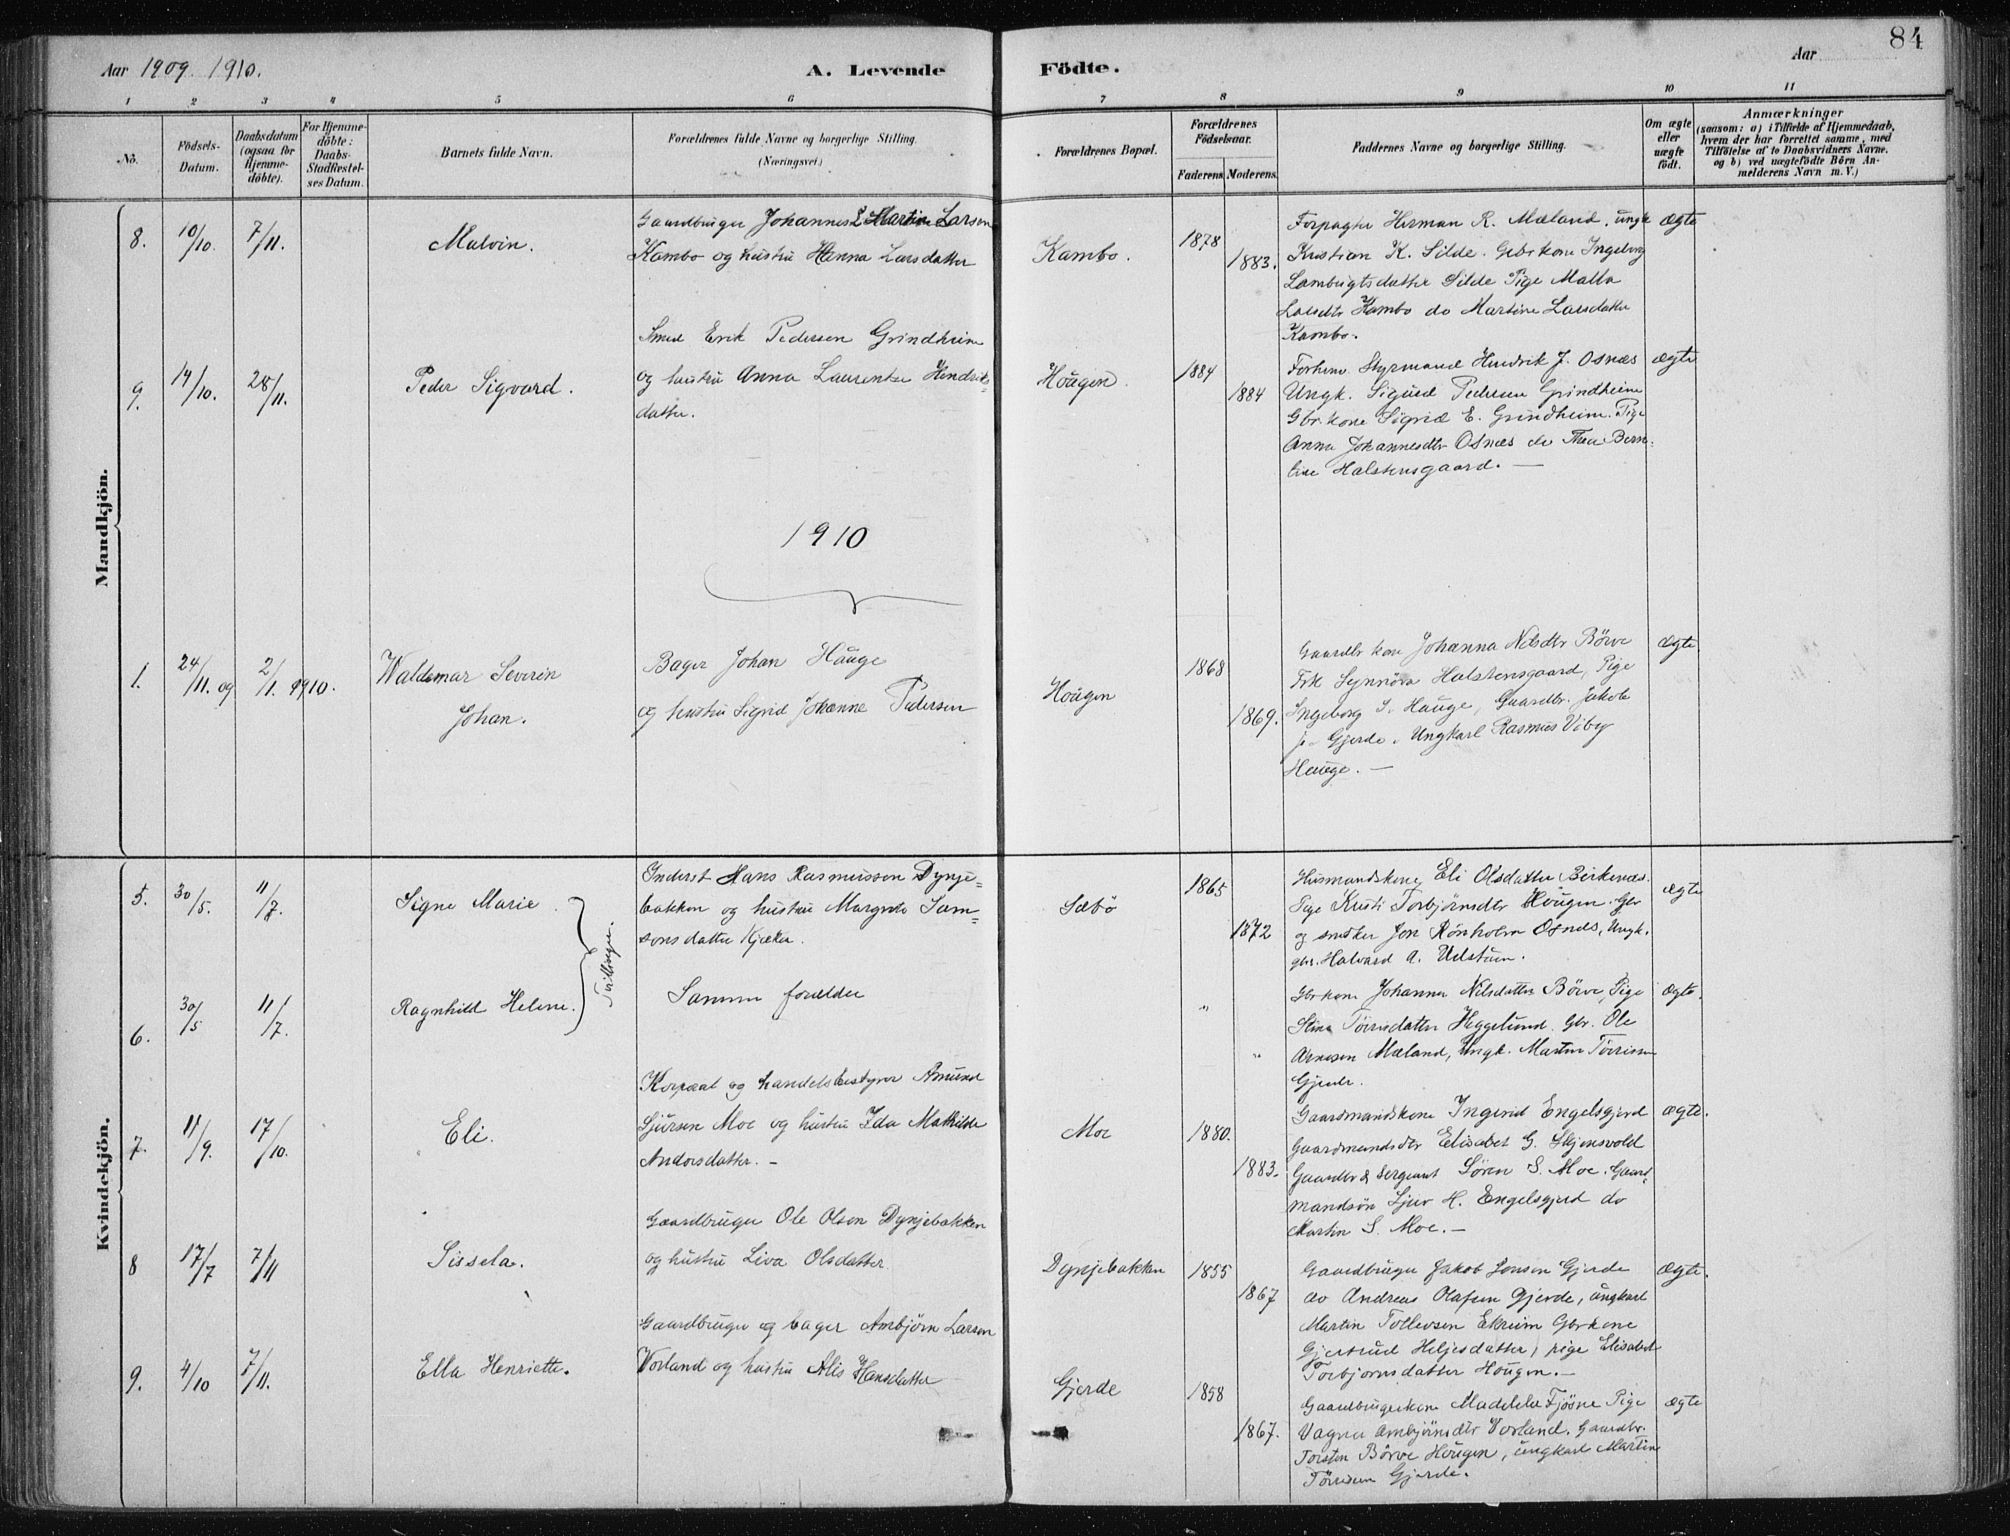 84
Aar 1909. 1910.
A. Levende Födte.
Aar
1 2 3 4 5 6 7 8 9 10 11
No.
Födsels-Datum.
Daabsdatum (ogsaa for Hjemme-döbte).
For Hjemme-döbte: Daabs-Stadfæstel-ses Datum.
Barnets fulde Navn.
Forældrenes fulde Navne og borgerlige Stilling. (Næringsvei.)
Forældrenes Bopæl.
Forældrenes Födselsaar.
Faderens. Moderens.
Faddernes Navne og borgerlige Stilling.
Om ægte eller uægte födt.
Anmærkninger
(saasom: a) i Tilfælde af Hjemmedaab, hvem der har forrettet samme, med Tilföielse af to Daabsvidners Navne, og b) ved uægtefödte Börn An-melderens Navn m. V.)
Mandkjön.
8. 10/10. 7/11. Malvin.
Gaardbruger Johannes Martin Larsen
Kambo og hustru Hanna Larsdatter
Kambo. 1878 1883.
Forpagter Herman R. Mæland, ungk
Kristian K. Silde. Gbrkone Ingeborg
Lambrigtsdatter Silde Pige Malla
Larsdtr Kambo do Martine Larsdatter
Kambo.
ægte
9. 14/10. 28/11. Peder Sigvard.
Smed Erik Pedersen Grindheim
og hustru Anna Laurentse Hendriks-
datter.
Hougen. 1884 1884
Forhenv. Styrmand Hendrik J. Osnæs
Ungk. Sigurd Pedersen Grindheim
Gbr.kone Sigrid E. Grindheim. Pige
Anna Johannesdtr Osnæs do Thea Bern-
tine Halstensgaard. —
ægte
1910
1. 24/11. og 2/1. 1910. Waldemar Severin
Johan.
Bager Johan Hauge
og hustru Sigrid Johanne Pedersen
Hougen 1868 1869.
Gaardbr kone Johanna Nilsdtr Börve
Frk Synnöva Halstensgaard, Pige
Ingeborg S. Hauge, Gaardbr. Jakob
J. Gjerde. Ungkarl Rasmus Viby
Hauge. —
ægte
Kvindekjön.
5. 30/5. 11/7. Signe Marie
Tvillinger.
Inderst Hans Rasmussen Dynje-
bakken og hustru Margrete Sam-
sonsdatter Kjæka.
Sæbö 1865 1872
Husmandskone Eli Olsdatter Birkenæs.
Pige Kristi Torbjörnsdtr Hougen. Gbr
og snedker Jon Rönholm Osnæs, Ungk.
gbr. Halvard A. Udstum.
ægte
6. 30/5 11/7. Ragnhild Helene.
Samme forældre
" "
Gbrkone Johanna Nilsdatter Börve, Pige
Stina Törrisdatter Heggelund. Gbr. Ole
Arnesen Mæland, Ungk. Martin Törrissen
Gjerde.
ægte.
7. 11/9. 17/10. Eli.
Korporal og handelsbestyrer Amund
Sjursen Moe og hustru Ida Mathilde
Andorsdatter. –
Moe 1880. 1883.
Gaardmandskone Ingerid Engelsgjerd
Gaardmandsdtr Elisabet G. Skjensvold
Gaardbr & Sergeant Sören S. Moe. Gaard-
mandsön Sjur H. Engelsgjerd do
Martin S. Moe. —
ægte.
8 17/7 7/11 Sissela.
Gaardbruger Ole Olsen Dynjebakken
og hustru Liva Olsdatter
Dynjebakken 1855 1867
Gaardbruger Jakob Jonsen Gjerde
do Andreas Olafsen Gjerde, ungkarl
Martin Tollevsen Ekrum Gbrkone
Gjertrud Heljesdatter, pige Elisabet
Torbjörnsdatter Hougen. —
ægte.
9. 4/10 7/11. Ella Henriette.
Gaardbruger og bager Ambjörn Larsen
Vorland og hustru Alis Hansdatter
Gjerde 1858 1867.
Gaardbrugerkone Madelele Fjösne Pige
Vagna Ambjörnsdtr Vorland, Gaardbr.
Torsten Börve Hougen, ungkarl Martin
Törrissen Gjerde.
ægte